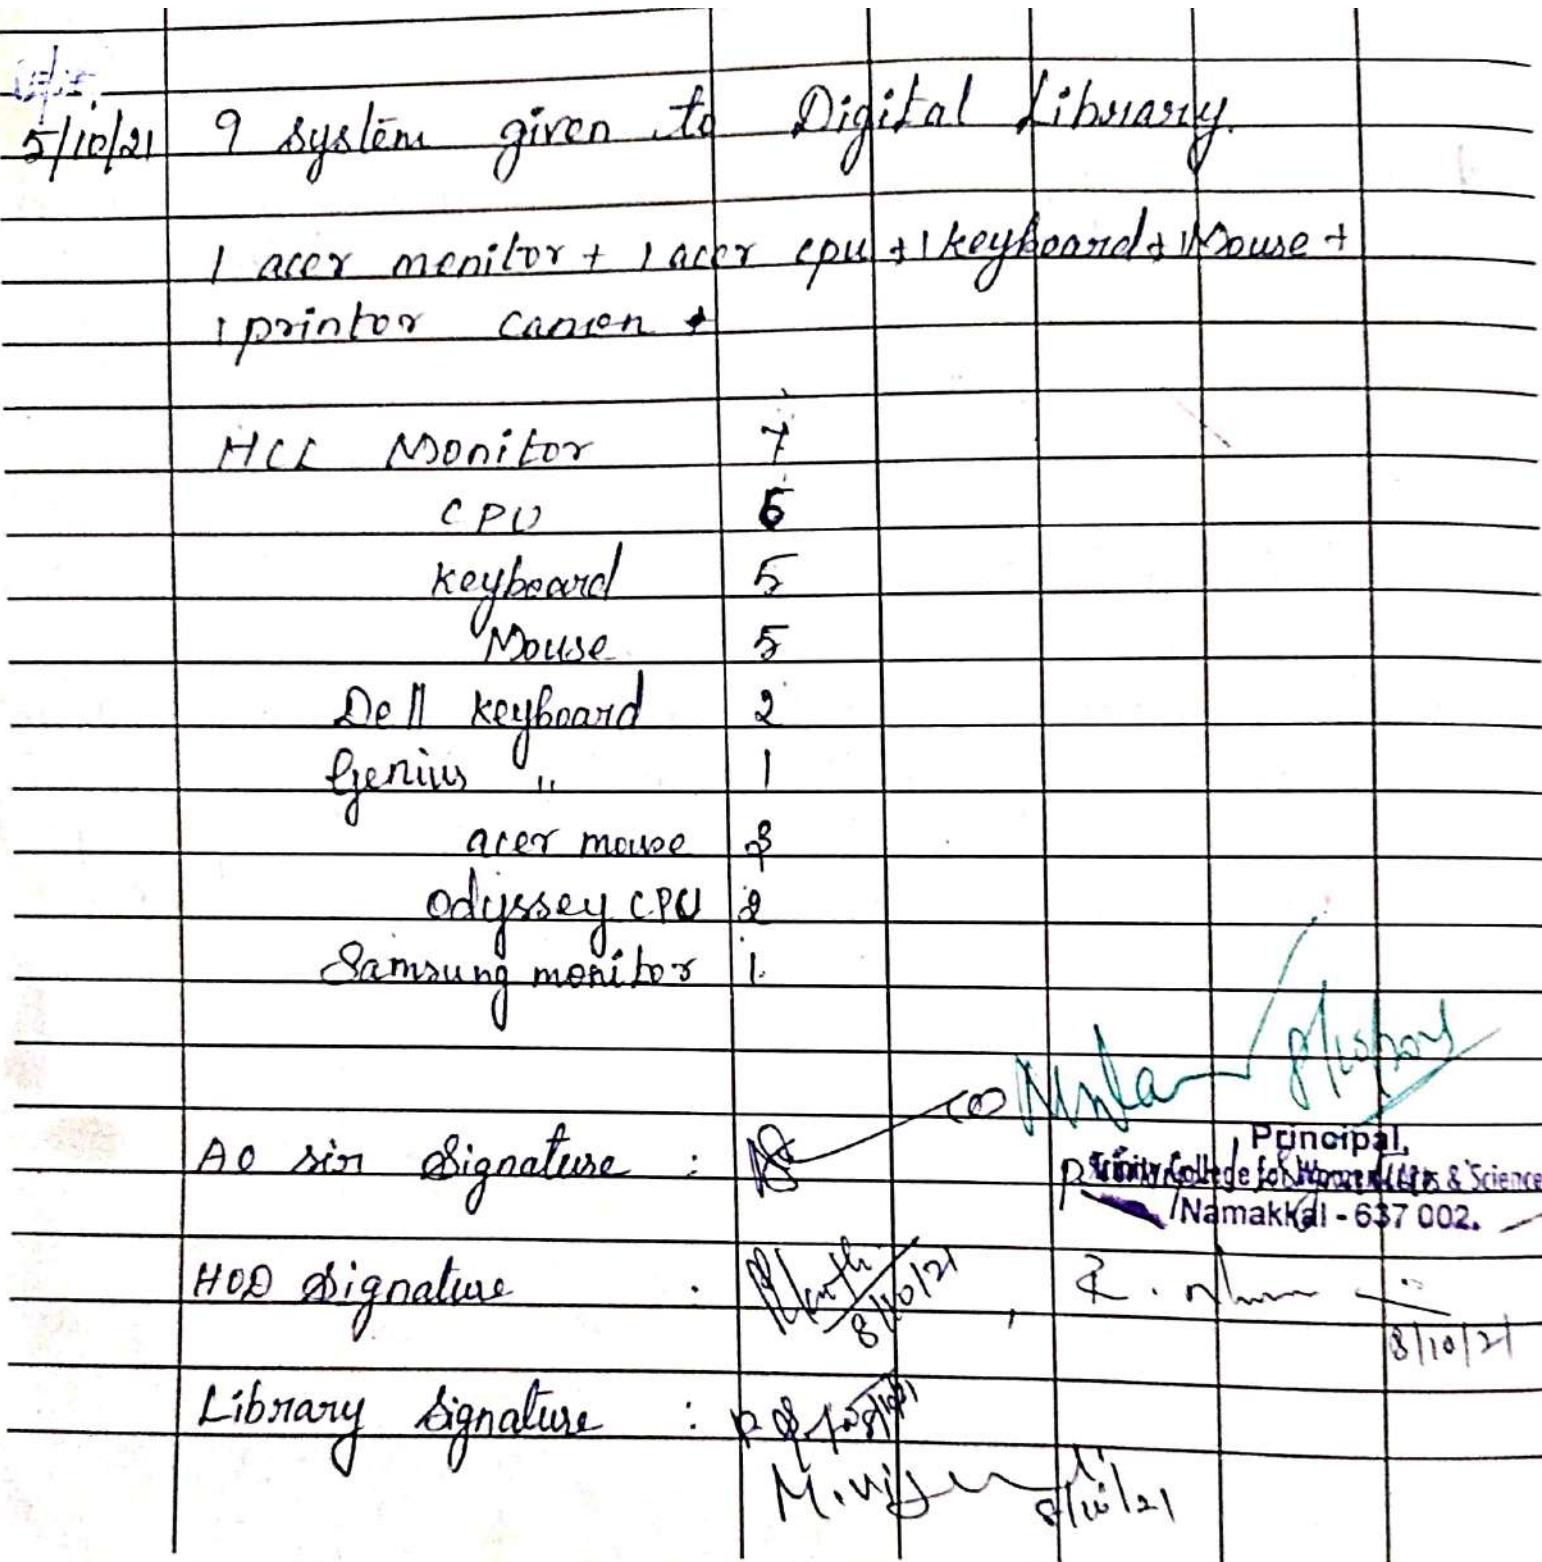 5/10/21 9 system given to Digital Library.
1 acer monitor + 1 acer cpu + 1 keyboard + 1 Mouse +
1 printor canon +
HCL Monitor 7
CPU 6
keyboard 5
Mouse 5
Dell keyboard 2
Genius " 1
acer mouse 3
Odyssey CPU 2
Samsung monitor 1.
Principal,
AO sir Signature :
Trinity College for Women Arts & Science
Namakkal - 637 002.
HOD Signature :
8/10/21
8/10/21
Library Signature :
8/10/21